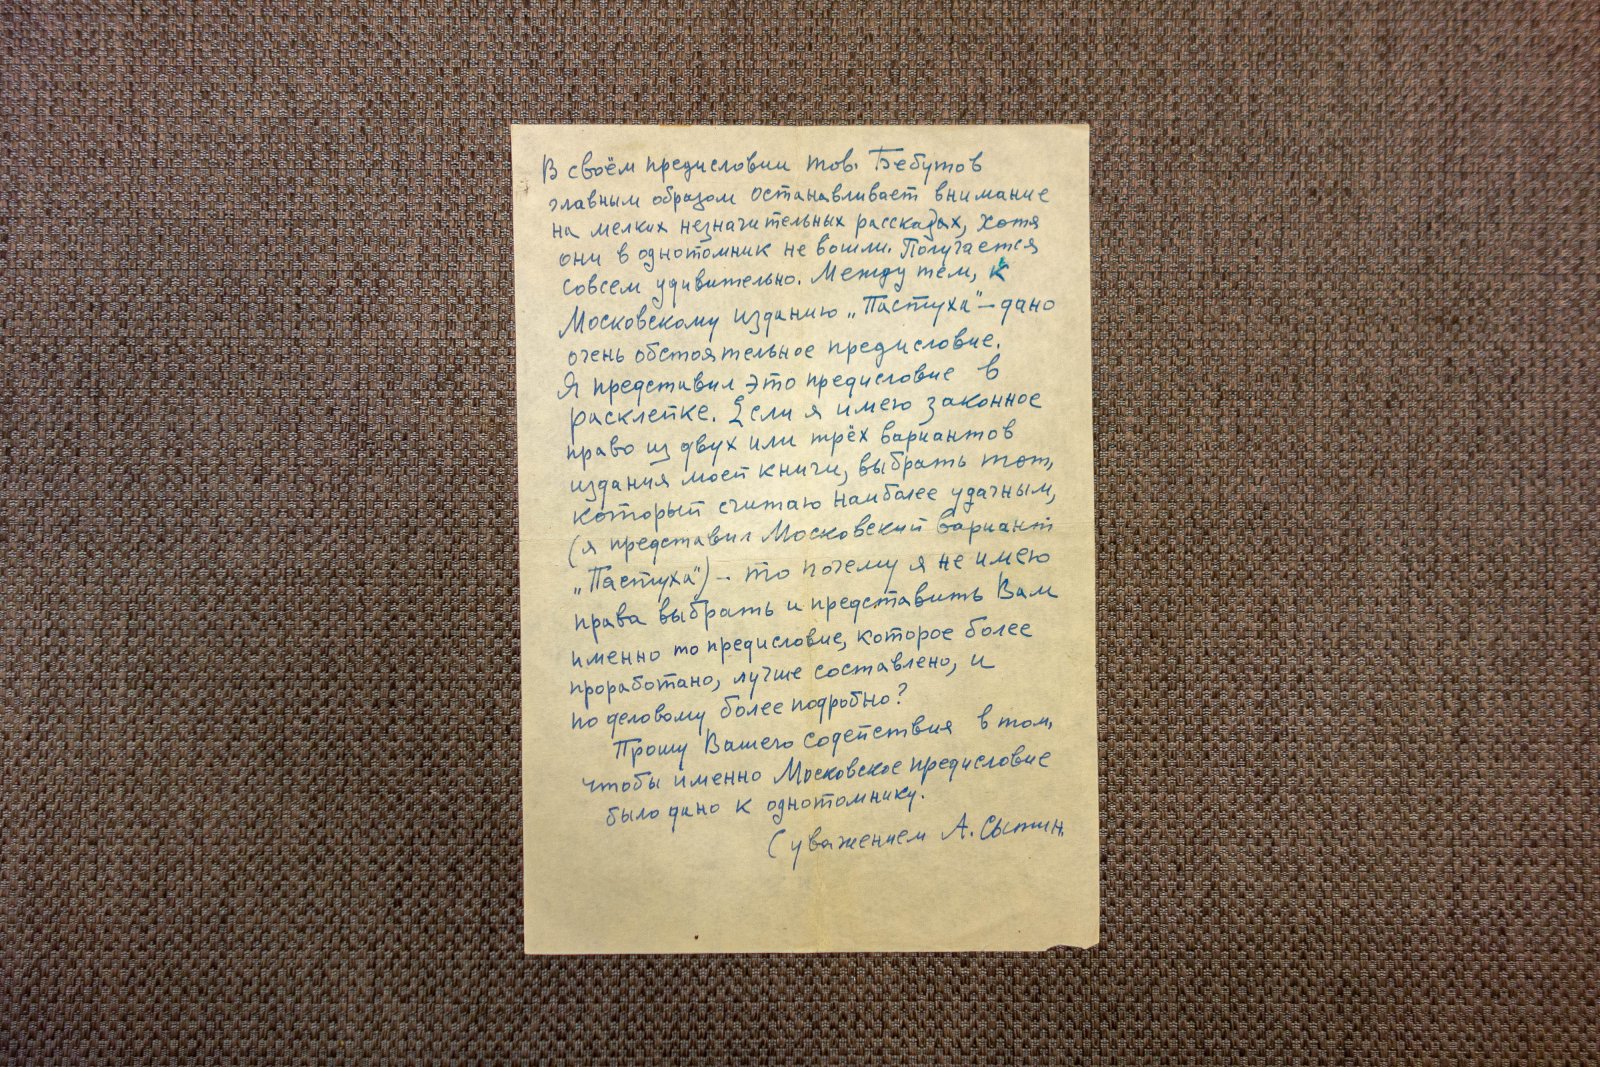 В своём предисловии тов. Бебутов
главным образом останавливает внимание
на мелких незначительных рассказах, хотя
они в однотомник не вошли. Получается
совсем удивительно. Между тем, к
Московскому изданию „Пастуха" – дано
очень обстоятельное предисловие.
Я представил это предисловие в
расклейке. Если я имею законное
право из двух или трёх вариантов
издания моей книги, выбрать тот,
который считаю наиболее удачным,
(я представил Московский вариант
„Пастуха") – то почему я не имею
права выбрать и представить Вам
именно то предисловие, которое более
проработано, лучше составлено, и
по деловому более подробно?
Прошу Вашего содействия в том,
чтобы именно Московское предисловие
было дано к однотомнику.
С уважением А. Сытин.